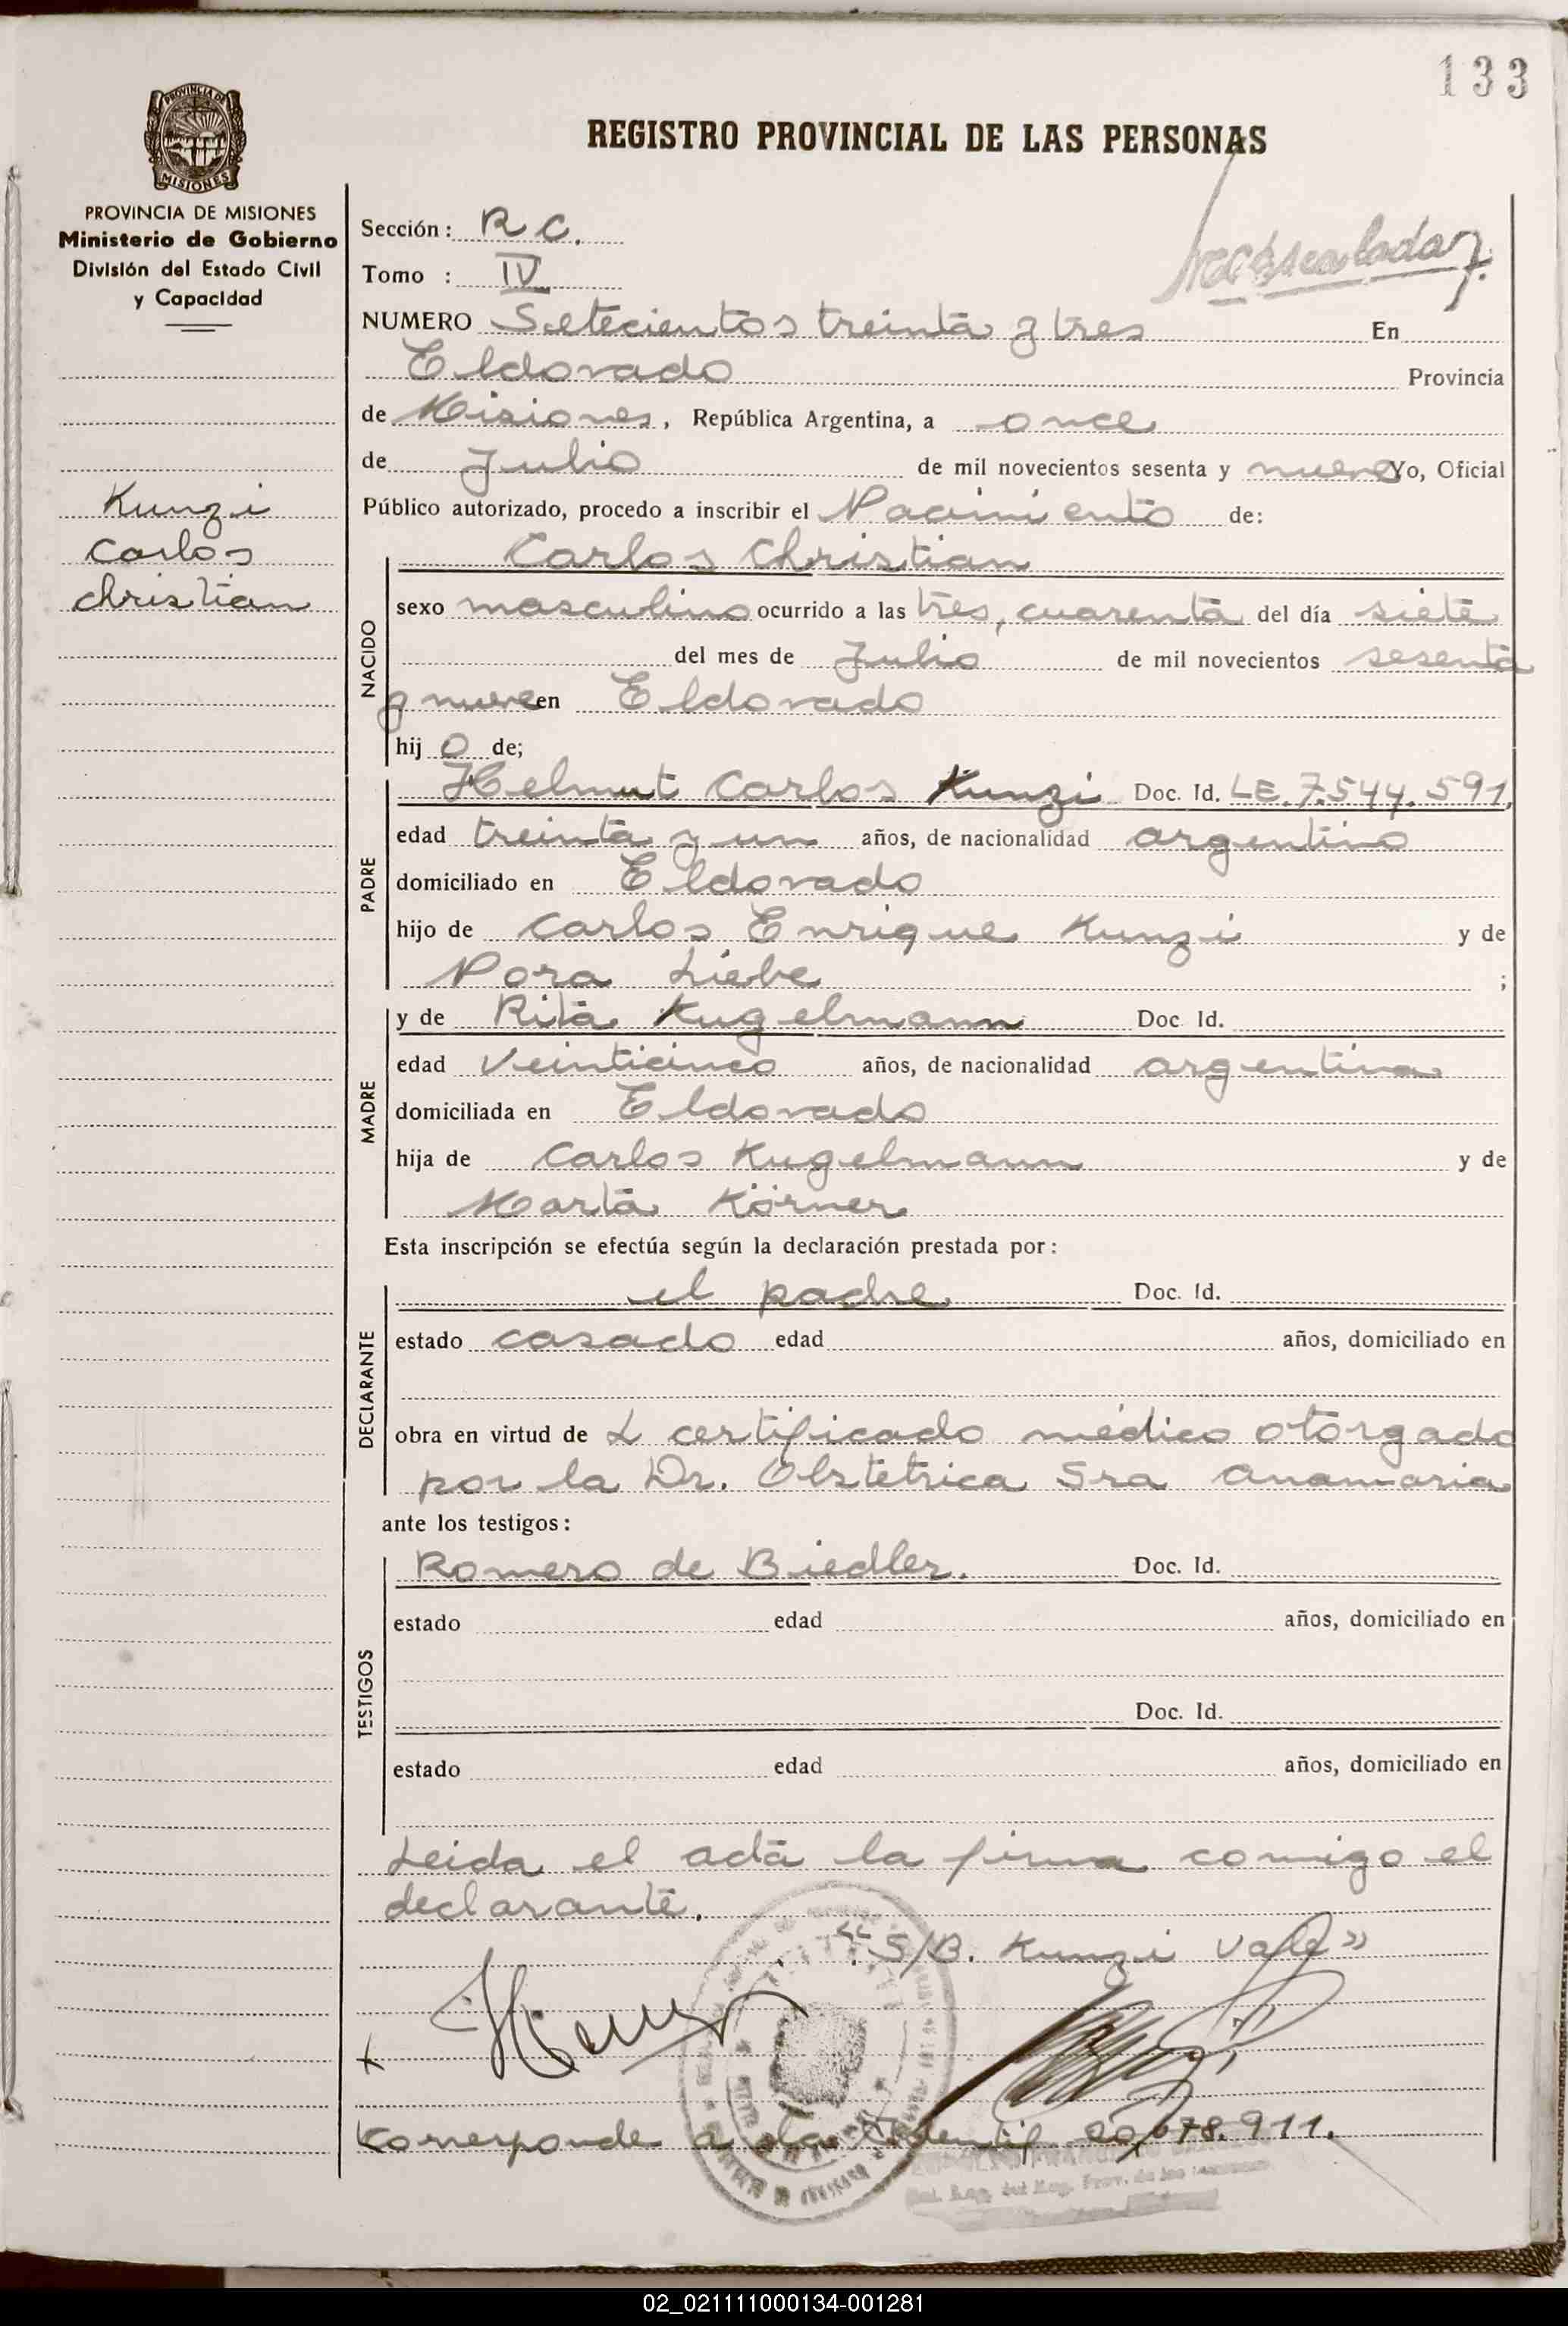 133
REGISTRO PROVINCIAL DE LAS PERSONAS
PROVINCIA DE
MISIONES
PROVINCIA DE MISIONES
Ministerio de Gobierno
División del Estado Civil
y Capacidad
Kunzi
Carlos
Christian
Sección: R C.
Tomo : IV
NUMERO Setecientos treinta y tres En
Eldorado Provincia
de Misiones, República Argentina, a once
de Julio de mil novecientos sesenta y nueve Yo, Oficial
Público autorizado, procedo a inscribir el Nacimiento de:
Carlos Christian
NACIDO
sexo masculino ocurrido a las tres, cuarenta del día siete
del mes de Julio de mil novecientos sesenta
y nueve en Eldorado
hij o de;
PADRE
Helmut Carlos Kunzi Doc. Id. LE. 7.544.591,
edad treinta y un años, de nacionalidad argentino
domiciliado en Eldorado
hijo de Carlos Enrique Kunzi y de
Nora Liebe ;
MADRE
y de Rita Kugelmann Doc Id.
edad Veinticinco años, de nacionalidad argentina
domiciliada en Eldorado
hija de Carlos Kugelmann y de
Marta Körner
Esta inscripción se efectúa según la declaración prestada por:
DECLARANTE
el padre Doc. Id.
estado casado edad años, domiciliado en
obra en virtud de L certificado médico otorgado
por la Dr. Obstetrica Sra Anamaria
ante los testigos:
TESTIGOS
Romero de Biedler. Doc. Id.
estado edad años, domiciliado en
Doc. Id.
estado edad años, domiciliado en
Leida el acta la firma conmigo el
declarante.
"S/B. Kunzi Vale"
Corresponde a la Identif 20.678.911.
02_021111000134-001281